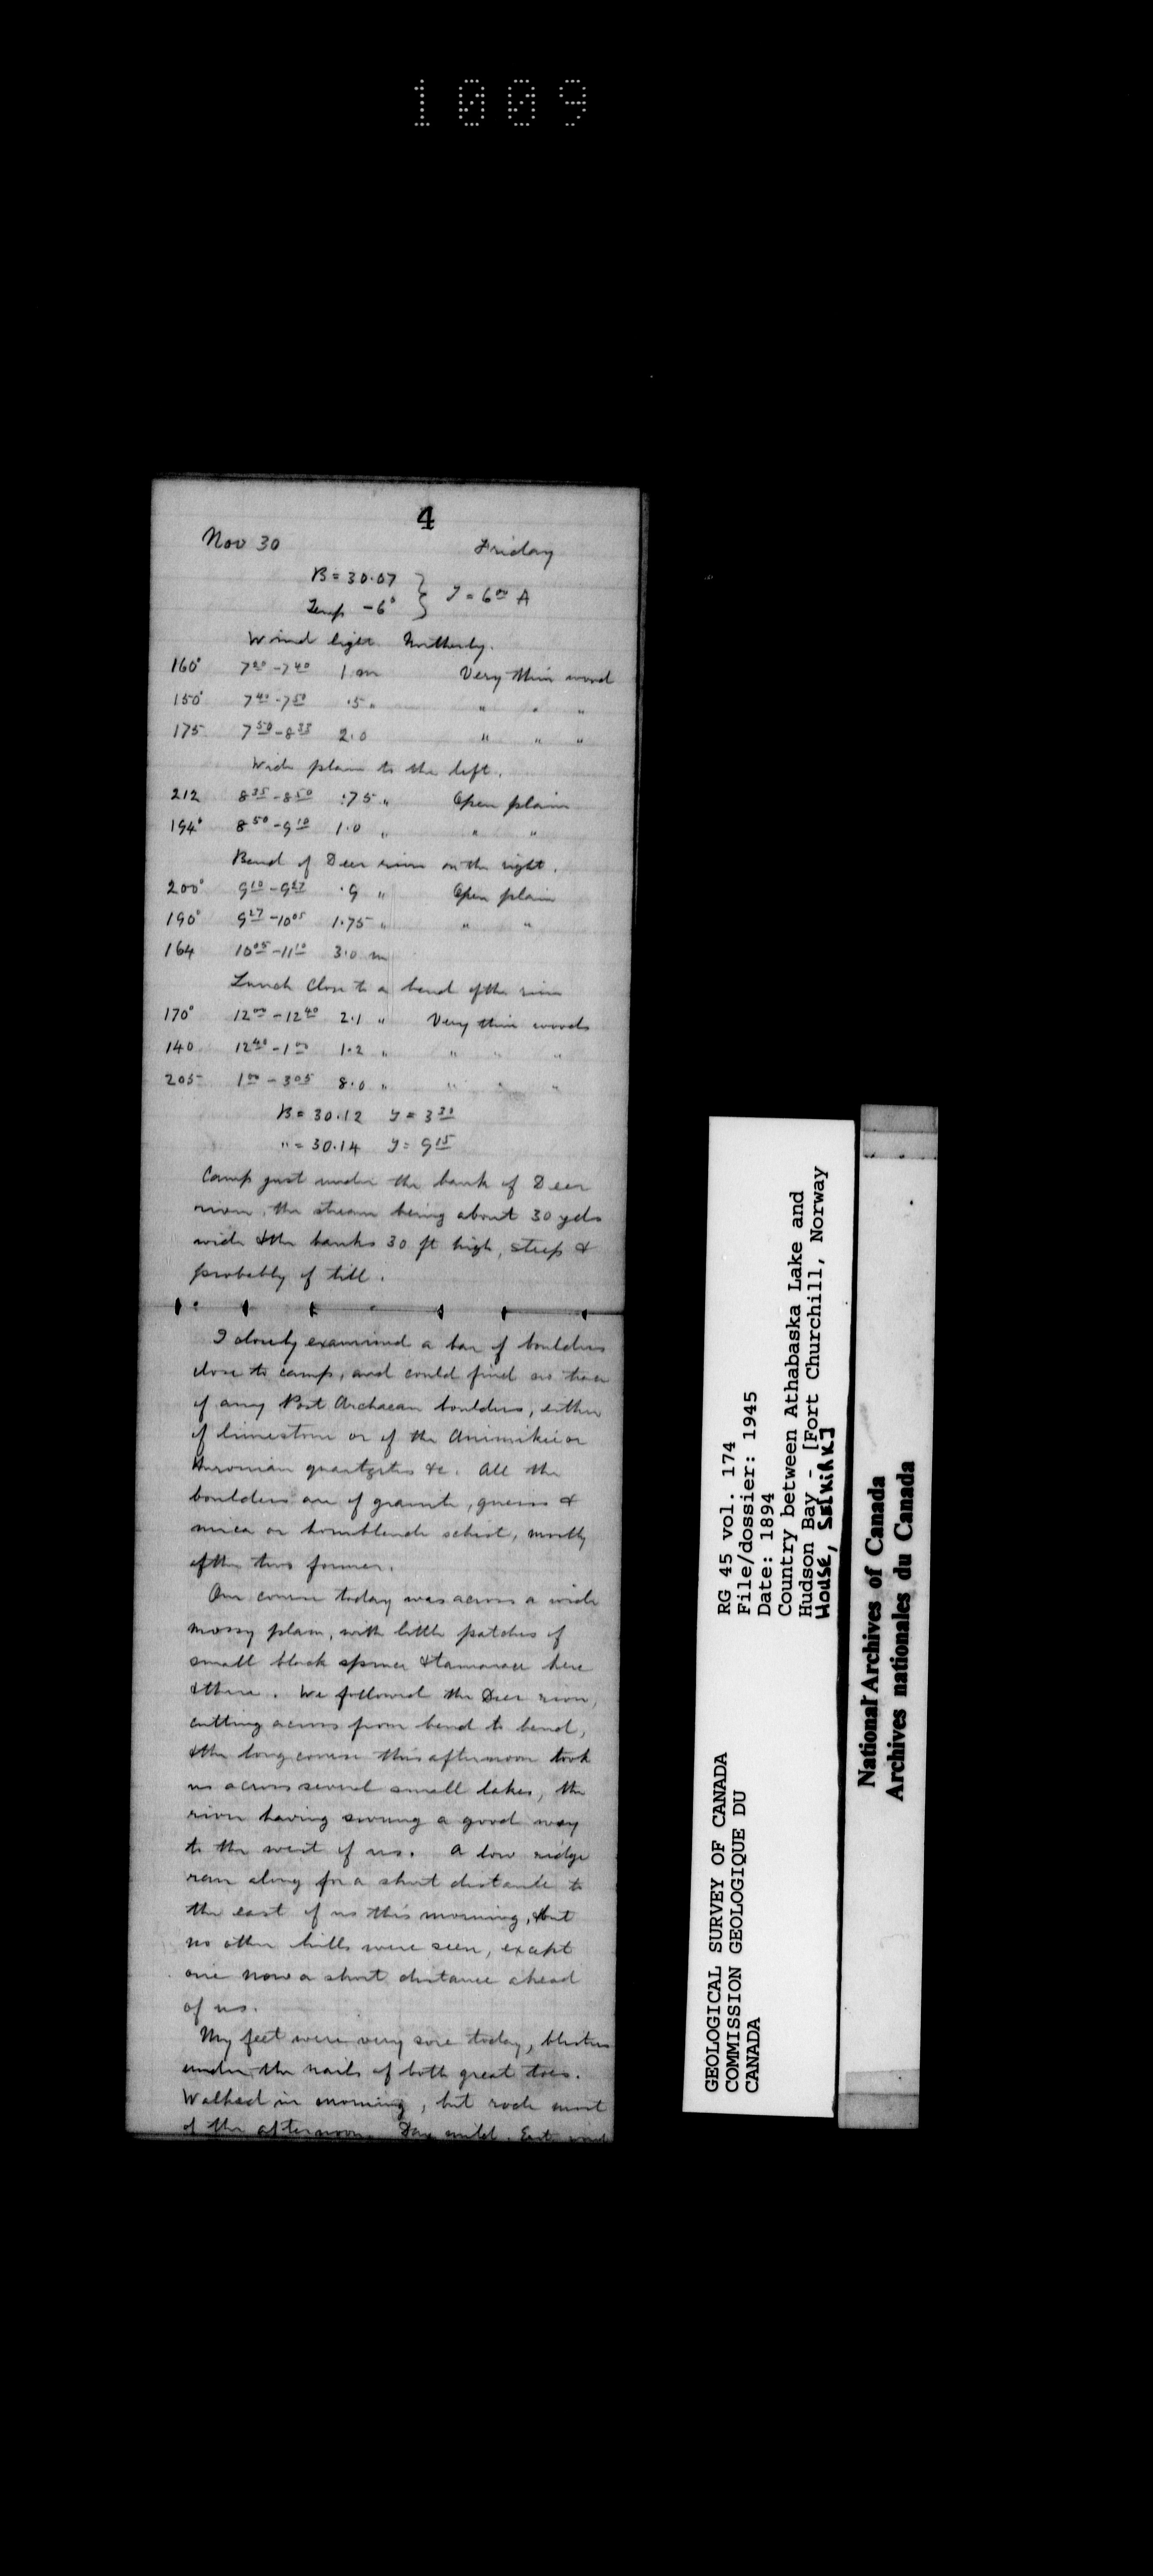 1009
4
Nov 30 Friday
B = 30.07 } T = 6 00 A
Temp -6°
Wind light Northerly.
160° 7 00 - 7 40 1 m Very thin wood
150° 7 40 - 7 50 .5 " " " "
175 7 50 - 8 35 2.0 " " "
Wide plain to the left.
212 8 35 - 8 50 .75 " Open plain
194° 8 50 - 9 10 1.0 " " "
Bend of Deer river on the right.
200° 9 10 - 9 27 .9 " Open plain
190° 9 27 - 10 05 1.75 " " "
164 10 05 - 11 10 3.0 m
Lunch close to a bend of the river
170° 12 00 - 12 40 2.1 " Very thin woods
140 12 40 - 1 00 1.2 " " " "
205 1 00 - 3 05 8.0 " " " "
B = 30.12 T = 3 30
" = 30.14 T = 9 15
Camp just under the bank of Deer
river, the stream being about 30 yds
wide & the banks 30 ft high, steep &
probably of till.
I closely examined a bar of boulders
close to camp, and could find no trace
of any Post Archaean boulders, either
of limestone or of the Animikie or
Huronian quartzites &c. All the
boulders are of granite, gneiss &
mica or hornblende schist, mostly
of the two former.
Our course today was across a wide
mossy plain, with little patches of
small black spruce & tamarace here
& there. We followed the Deer river,
cutting across from bend to bend,
& the long course this afternoon took
us across several small lakes, the
river having swung a good way
to the west of us. A low ridge
ran along for a short distance to
the east of us this morning, but
no other hills were seen, except
one now a short distance ahead
of us.
My feet were very sore today, blisters
under the nails of both great toes.
Walked in morning, but rode most
of the afternoon. Day mild. East wind
RG 45 vol. 174
File/dossier: 1945
Date: 1894
Country between Athabaska Lake and
Hudson Bay - [Fort Churchill, Norway
House, Selkirk]
GEOLOGICAL SURVEY OF CANADA
COMMISSION GEOLOGIQUE DU
CANADA
National Archives of Canada
Archives nationales du Canada